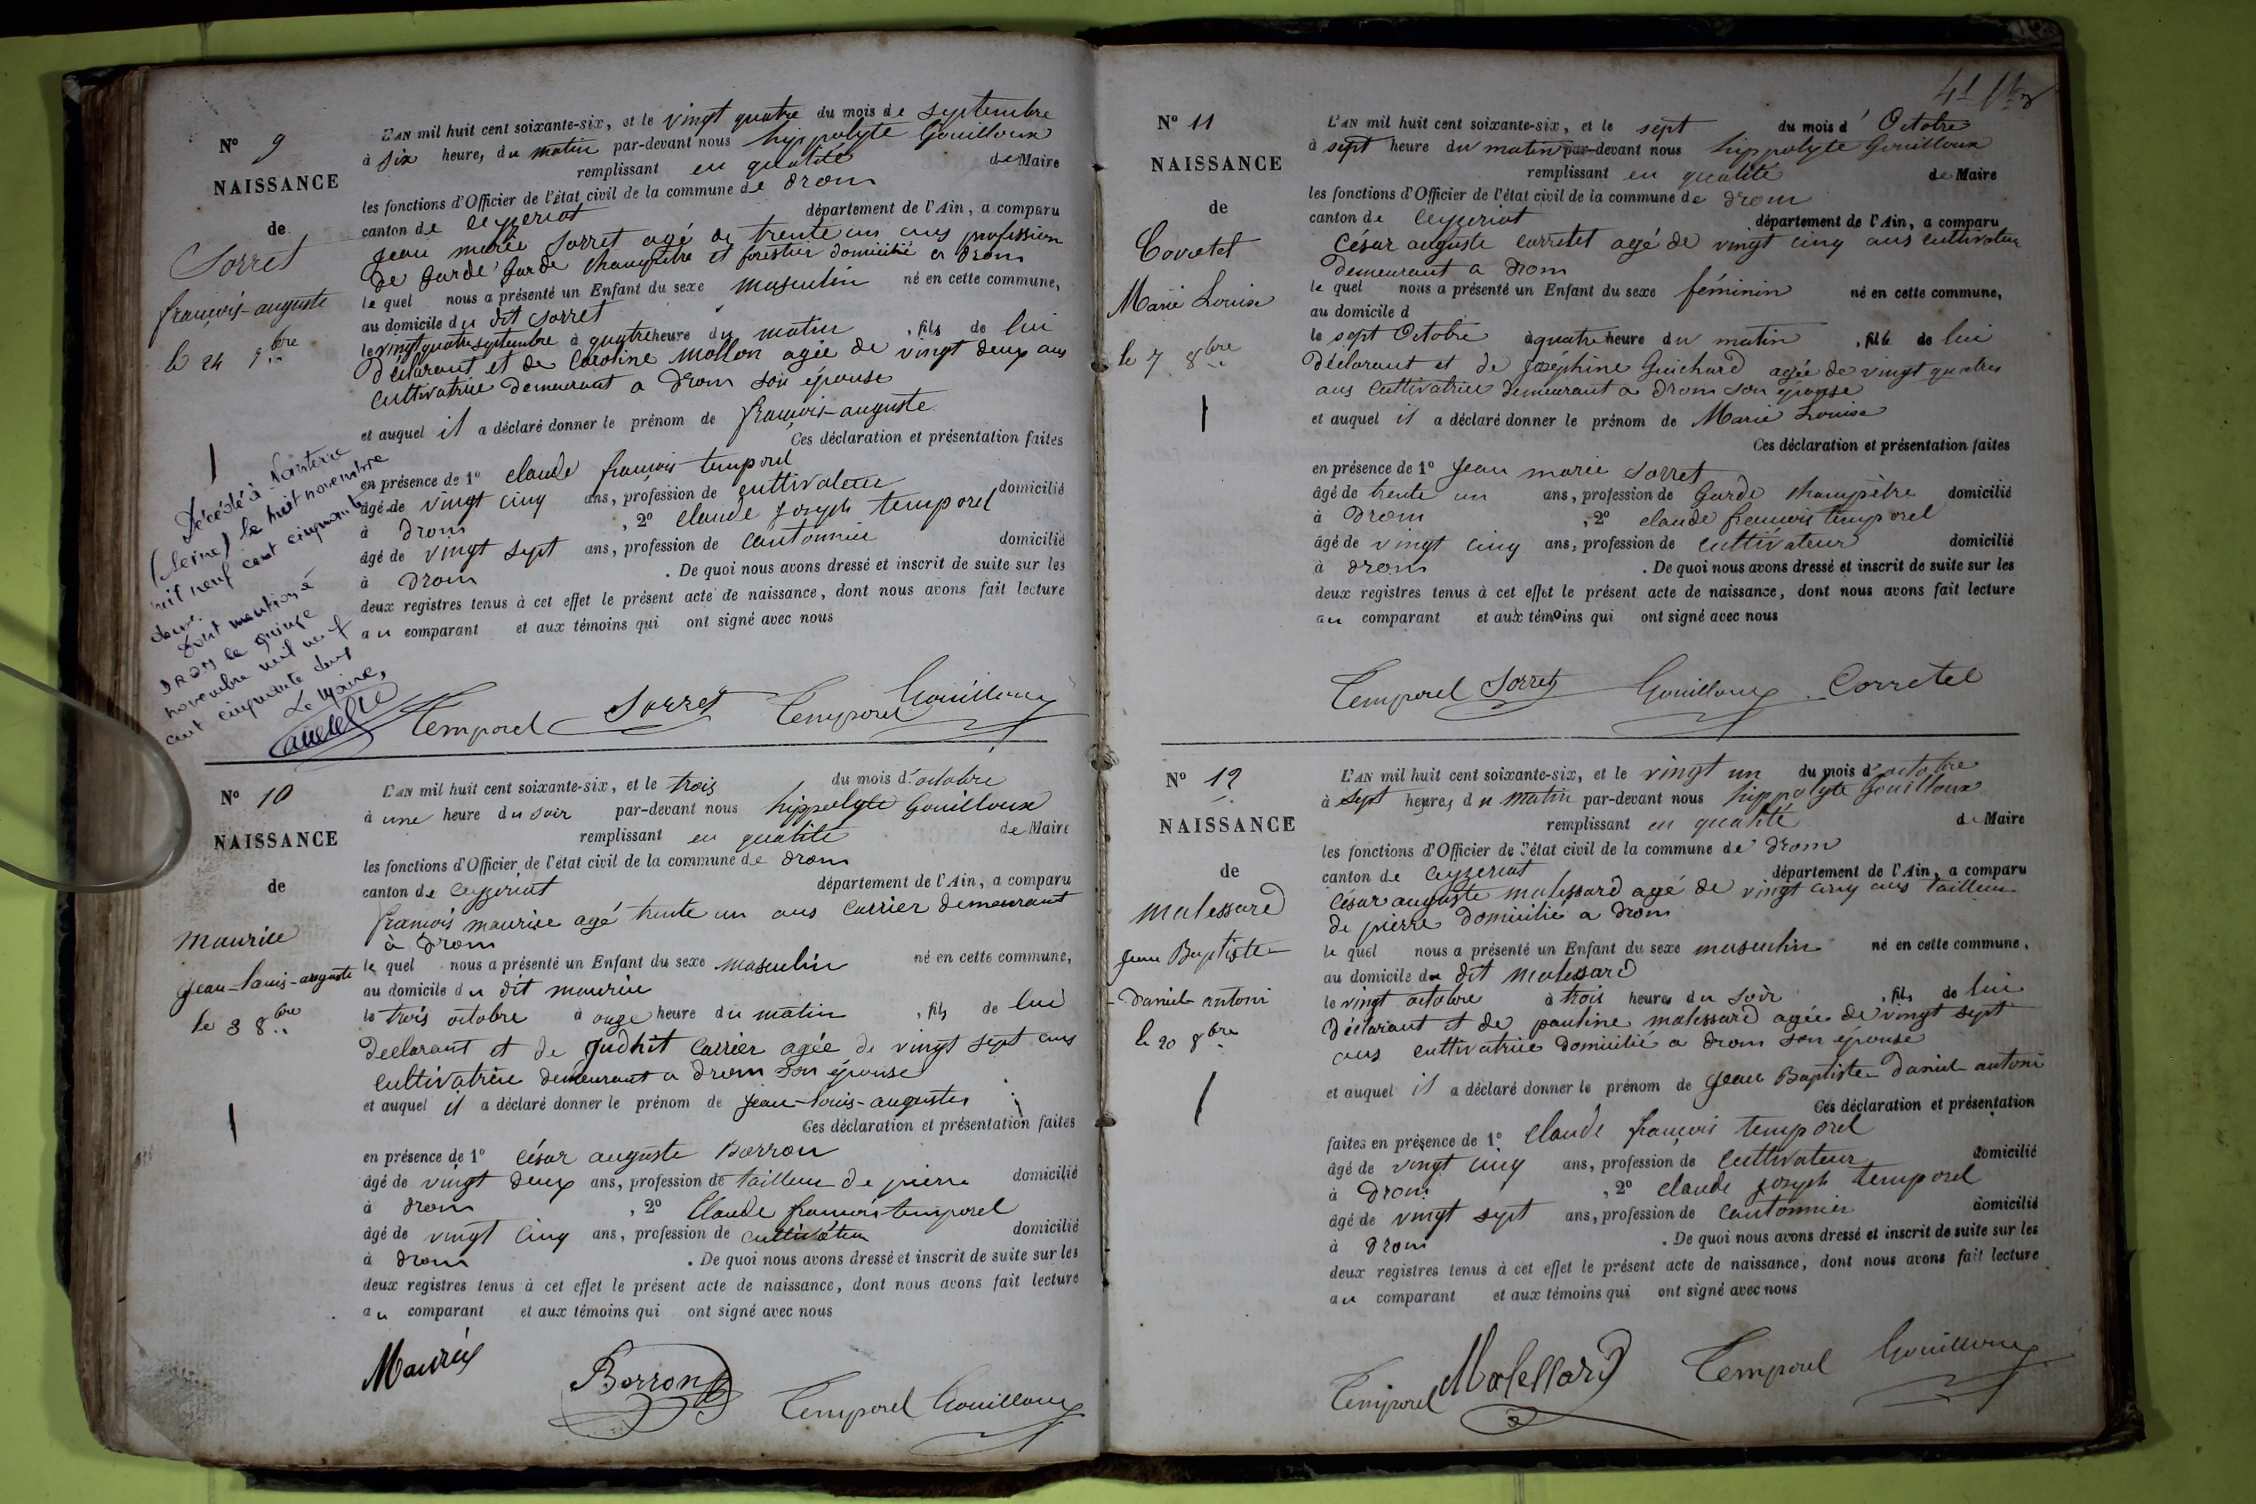 N° 9
NAISSANCE
de
Sorret
françois-auguste
le 24 9bre
Décédé à Nanterre
(Seine) le huit novembre
mil neuf cent cinquante
deux.
Dont mention à
DROM le quinze
novembre mil neuf
cent cinquante deux
Le Maire,
L'AN mil huit cent soixante-six, et le vingt quatre du mois de septembre
à six heure, du matin par-devant nous hippolyte Gouilloux
remplissant en qualité de Maire
les fonctions d'Officier de l'état civil de la commune de drom
canton de ceyzeriat département de l'Ain, a comparu
jean marie Sorret agé de trente un ans profession
de Garde Garde champêtre et forestier domicilié a Drom
le quel nous a présenté un Enfant du sexe masculin né en cette commune,
au domicile du dit Sorret
le vingt quatre septembre à quatre heure du matin, fils de lui
déclarant et de Caroline Mollon agée de vingt deux ans
cultivatrice demeurant a Drom son épouse
et auquel il a déclaré donner le prénom de françois-auguste
Ces déclaration et présentation faites
en présence de 1° claude françois temporel
âgé de vingt cinq ans, profession de cultivateur domicilié
à drom, 2° claude joseph temporel
âgé de vingt sept ans, profession de cantonnier domicilié
à drom. De quoi nous avons dressé et inscrit de suite sur les
deux registres tenus à cet effet le présent acte de naissance, dont nous avons fait lecture
au comparant et aux témoins qui ont signé avec nous
Temporel Sorret Temporel Gouilloux
N° 10
NAISSANCE
de
maurice
jean-louis-auguste
le 3 8bre
L'AN mil huit cent soixante-six, et le trois du mois d'octobre
à une heure du soir par-devant nous hippolyte Gouilloux
remplissant en qualité de Maire
les fonctions d'Officier de l'état civil de la commune de drom
canton de ceyzeriat département de l'Ain, a comparu
françois maurice agé trente un ans carrier demeurant
à Drom
le quel nous a présenté un Enfant du sexe masculin né en cette commune,
au domicile du dit maurice
le trois octobre à onze heure du matin, fils de lui
déclarant et de Judhit Carrier agée de vingt sept ans
cultivatrice demeurant a Drom son épouse
et auquel il a déclaré donner le prénom de jean-louis-auguste
Ces déclaration et présentation faites
en présence de 1° césar auguste Borron
âgé de vingt deux ans, profession de tailleur de pierre domicilié
à drom, 2° Claude françois temporel
âgé de vingt cinq ans, profession de cultivateur domicilié
à drom. De quoi nous avons dressé et inscrit de suite sur les
deux registres tenus à cet effet le présent acte de naissance, dont nous avons fait lecture
au comparant et aux témoins qui ont signé avec nous
Maurice Borron Temporel Gouilloux
N° 11
NAISSANCE
de
Corretet
Marie Louise
le 7 8bre
L'AN mil huit cent soixante-six, et le sept du mois d'Octobre
à sept heure du matin par-devant nous hippolyte Gouilloux
remplissant en qualité de Maire
les fonctions d'Officier de l'état civil de la commune de drom
canton de ceyzeriat département de l'Ain, a comparu
César auguste corretet agé de vingt cinq ans cultivateur
demeurant a drom
le quel nous a présenté un Enfant du sexe féminin né en cette commune,
au domicile d
le sept Octobre à quatre heure du matin, fille de lui
déclarant et de joséphine Guichard agée de vingt quatres
ans cultivatrice demeurant a Drom son épouse
et auquel il a déclaré donner le prénom de Marie Louise
Ces déclaration et présentation faites
en présence de 1° jean marie Sorret
âgé de trente un ans, profession de Garde champêtre domicilié
à Drom, 2° claude françois temporel
âgé de vingt cinq ans, profession de cultivateur domicilié
à drom. De quoi nous avons dressé et inscrit de suite sur les
deux registres tenus à cet effet le présent acte de naissance, dont nous avons fait lecture
au comparant et aux témoins qui ont signé avec nous
Temporel Sorret Gouilloux Corretet
N° 12
NAISSANCE
de
malessard
jean Baptiste-
-daniel antoni
le 20 8bre
L'AN mil huit cent soixante-six, et le vingt un du mois d'octobre
à sept heures du matin par-devant nous hippolyte Gouilloux
remplissant en qualité de Maire
les fonctions d'Officier de l'état civil de la commune de drom
canton de ceyzeriat département de l'Ain, a comparu
César auguste malessard agé de vingt cinq ans tailleur
de pierre domicilié a drom
le quel nous a présenté un Enfant du sexe masculin né en cette commune,
au domicile du dit malessard
le vingt octobre à trois heures du soir, fils de lui
déclarant et de pauline malessard agée de vingt sept
ans cultivatrice domicilié a drom son épouse
et auquel il a déclaré donner le prénom de jean Baptiste-daniel antoni
Ces déclaration et présentation
faites en présence de 1° claude françois temporel
âgé de vingt cinq ans, profession de cultivateur domicilié
à drom, 2° claude joseph temporel
âgé de vingt sept ans, profession de cantonnier domicilié
à drom. De quoi nous avons dressé et inscrit de suite sur les
deux registres tenus à cet effet le présent acte de naissance, dont nous avons fait lecture
au comparant et aux témoins qui ont signé avec nous
Temporel Malessard Temporel Gouilloux